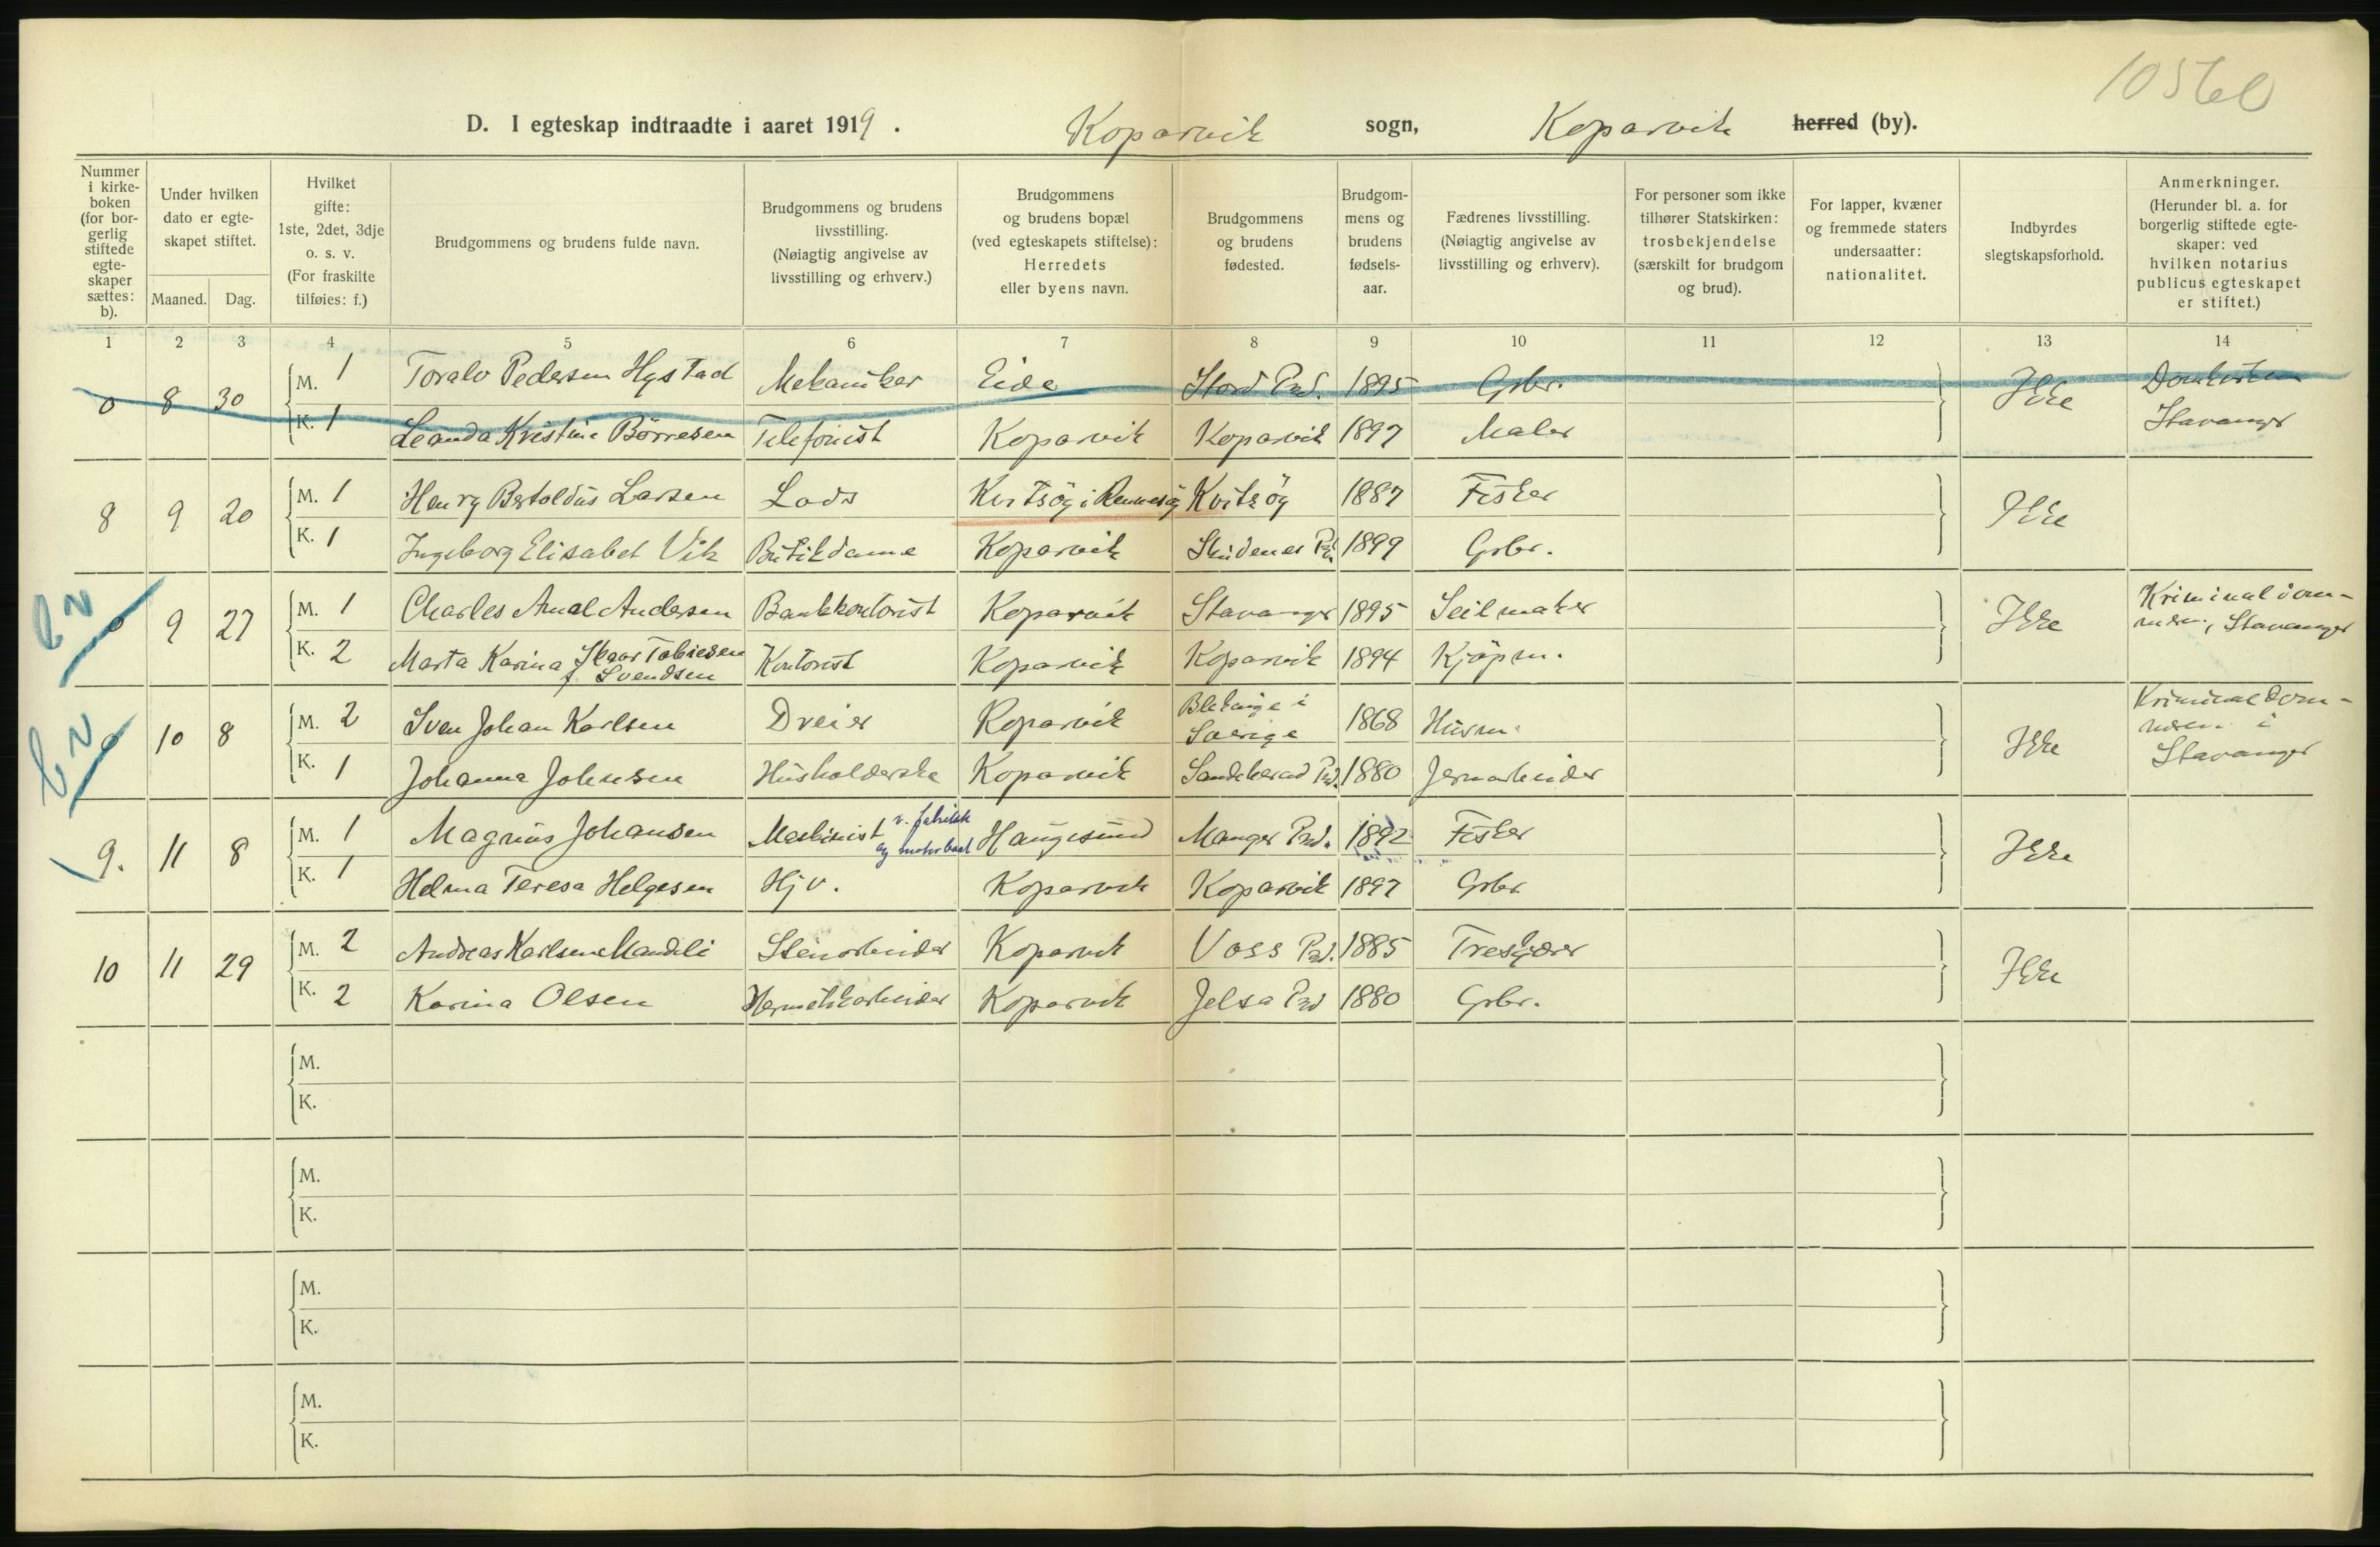 10560
D. I egteskap indtraadte i aaret 1919. Kopervik sogn, Kopervik herred (by).
Nummer i kirkeboken (for borgerlig stiftede egteskaper sættes: b).
Under hvilken dato er egteskapet stiftet.
Maaned. Dag.
Hvilket gifte: 1ste, 2det, 3dje o. s. v. (For fraskilte tilføies: f.)
Brudgommens og brudens fulde navn.
Brudgommens og brudens livsstilling. (Nøiagtig angivelse av livsstilling og erhverv.)
Brudgommens og brudens bopæl (ved egteskapets stiftelse): Herredets eller byens navn.
Brudgommens og brudens fødested.
Brudgommens og brudens fødselsaar.
Fædrenes livsstilling. (Nøiagtig angivelse av livsstilling og erhverv).
For personer som ikke tilhører Statskirken: trosbekjendelse (særskilt for brudgom og brud).
For lapper, kvæner og fremmede staters undersaatter: nationalitet.
Indbyrdes slegtskapsforhold.
Anmerkninger. (Herunder bl. a. for borgerlig stiftede egteskaper: ved hvilken notarius publicus egteskapet er stiftet.)
1 2 3 4 5 6 7 8 9 10 11 12 13 14
0 8 30 M. 1 Toralv Pedersen Hystad Mekaniker Eide Stord Prd. 1895 Gbr. Ikke Domkirken
K. 1 Leanda Kristine Börresen Telefonist Kopervik Kopervik 1897 Maler Stavanger
8 9 20 M. 1 Henry Bertoldus Larsen Lods Kvitsöy i Rennesöy Kvitsöy 1887 Fisker Ikke
K. 1 Ingeborg Elisabet Vik Butikdame Kopervik Skudenes Prd. 1899 Gbr.
0 9 27 M. 1 Charles Amal Andersen Bankkontorist Kopervik Stavanger 1895 Seilmaker Ikke Kriminaldom-
meren, Stavanger
K. 2 Marta Karina Skaar Tobiesen f. Svendsen Kontorist Kopervik Kopervik 1894 Kjöpm.
0 10 8 M. 2 Sven Johan Karlsen Dreier Kopervik Blekinge i Sverige 1868 Husm. Ikke Kriminaldom-
meren i
Stavanger
K. 1 Johanna Johnsen Husholderske Kopervik Sandeherad Prd. 1880 Jernarbeider
9. 11 8 M. 1 Magnus Johansen Maskinist v. fabrikk og motorbaat Haugesund Manger Prd. 1892 Fisker Ikke
K. 1 Helma Teresa Helgesen Hjv. Kopervik Kopervik 1897 Gbr.
10 11 29 M. 2 Andreas Karlsen Stenarbeider Kopervik Voss Prd. 1885 Treskjærer Ikke
K. 2 Karina Olsen Hermetikarbeider Kopervik Jelsa Prd 1880 Gbr.
M.
K.
M.
K.
M.
K.
M.
K.